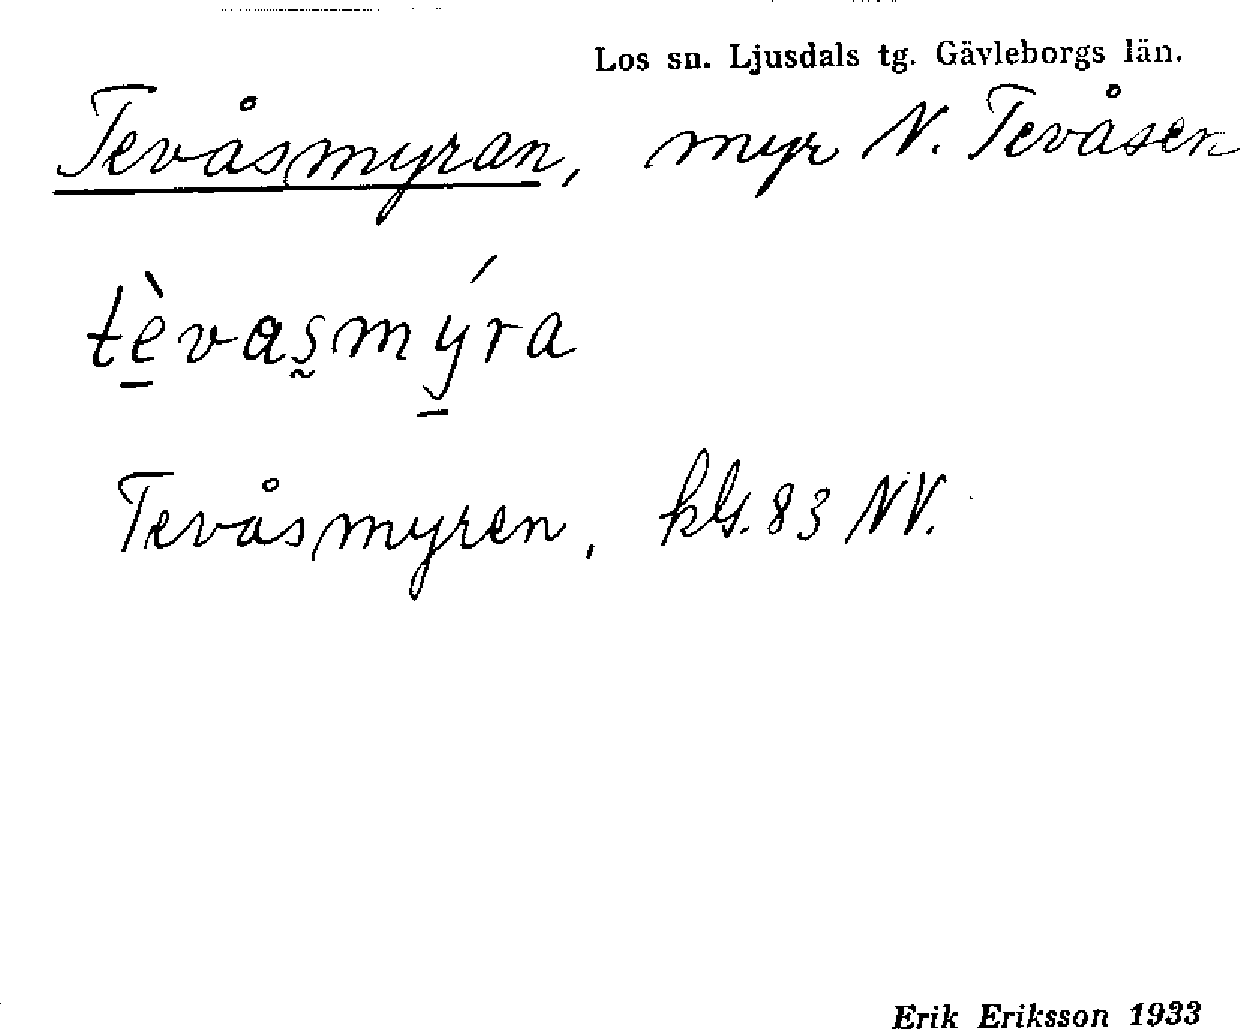 Los sn. Ljusdals tg. Gävleborgs län.
Tevåsmyran, myr N. Tevåsen
tè̱vas̰mý̱ra
Tevåsmyren, kbl. 83 NV.
Erik Eriksson 1933